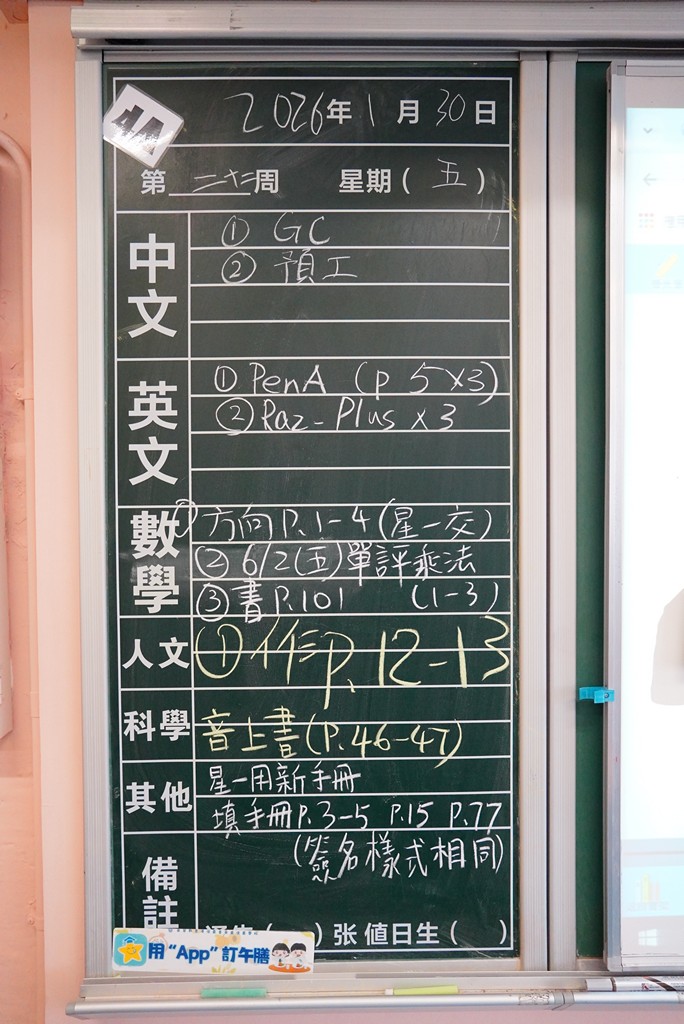 4A
2026年1月30日
第二十二周 星期(五)
中文
① GC
② 預工
英文
① PenA (p 5×3)
② Raz-Plus ×3
數學
① 方向P.1-4(星一交)
② 6/2(五)單評乘法
③ 書P.101 (1-3)
人文
① 作P.12-13
科學
音上書(P.46-47)
其他
星一用新手冊
填手冊P.3-5 P.15 P.77
備註
(簽名樣式相同)
( ) 张 值日生 ( )
用“App”訂午膳